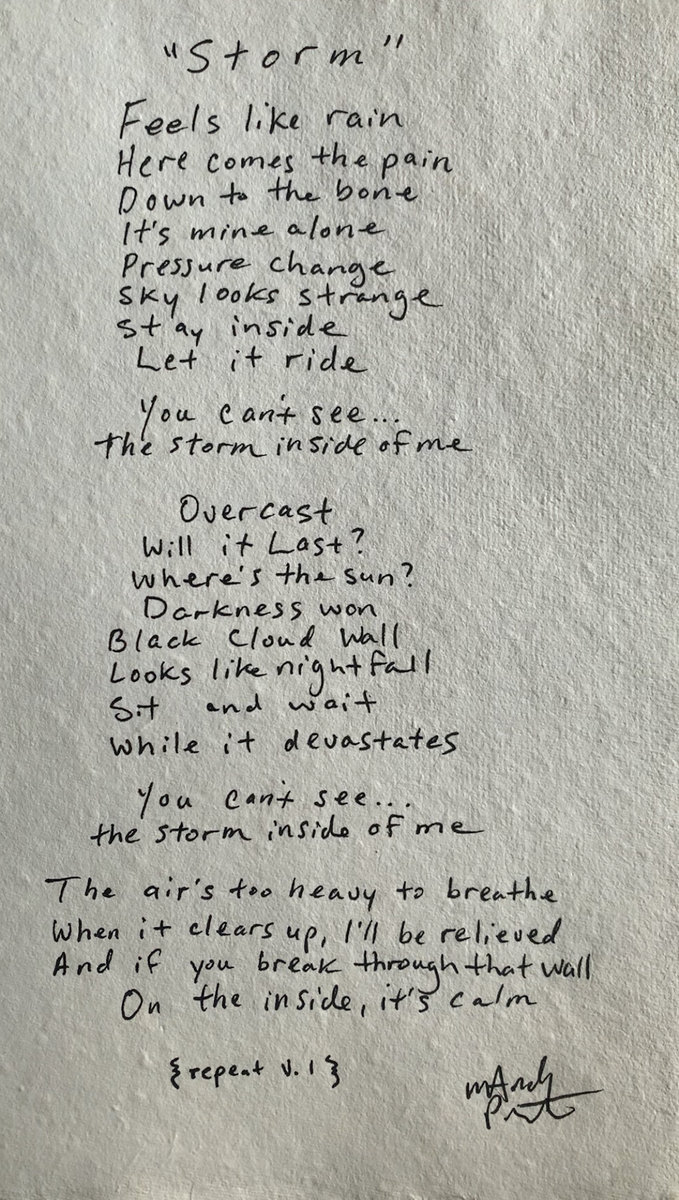 "Storm"
Feels like rain
Here comes the pain
Down to the bone
It's mine alone
Pressure change
Sky looks strange
Stay inside
Let it ride
You can't see...
the storm inside of me
Overcast
Will it Last?
Where's the sun?
Darkness won
Black Cloud Wall
Looks like nightfall
Sit and wait
While it devastates
You can't see...
the storm inside of me
The air's too heavy to breathe
When it clears up, I'll be relieved
And if you break through that wall
On the inside, it's calm
{repeat v. 1}